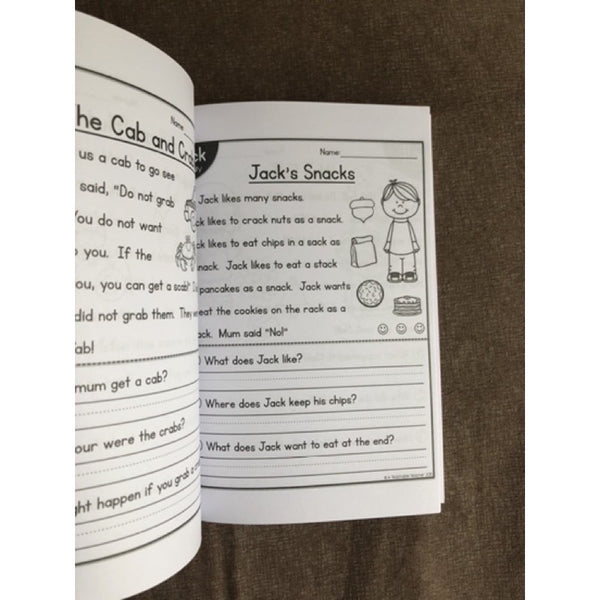 Name:
he Cab and Cra
us a cab to go see
said, "Do not grab
ou do not want
you. If the
ou, you can get a scab!
did not grab them. They
ab!
mum get a cab?
our were the crabs?
ght happen if you grab a
ck
Name:
Jack's Snacks
Jack likes many snacks.
ck likes to crack nuts as a snack.
ck likes to eat chips in a sack as
nack. Jack likes to eat a stack
pancakes as a snack. Jack wants
eat the cookies on the rack as a
ack. Mum said "No!"
) What does Jack like?
) Where does Jack keep his chips?
) What does Jack want to eat at the end?